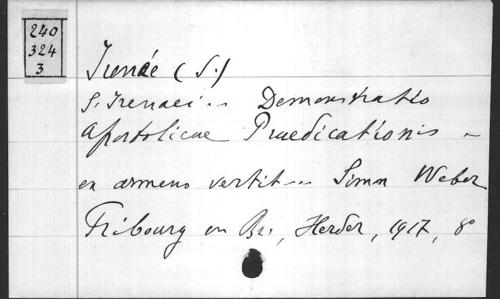 240
324
3
Irenée (S.)
S. Irenaei .. Demonstratio
Apostolicae Praedicationis ..
ex armeno vertit .. Simon Weber
Fribourg en Br., Herder, 1917, 8°